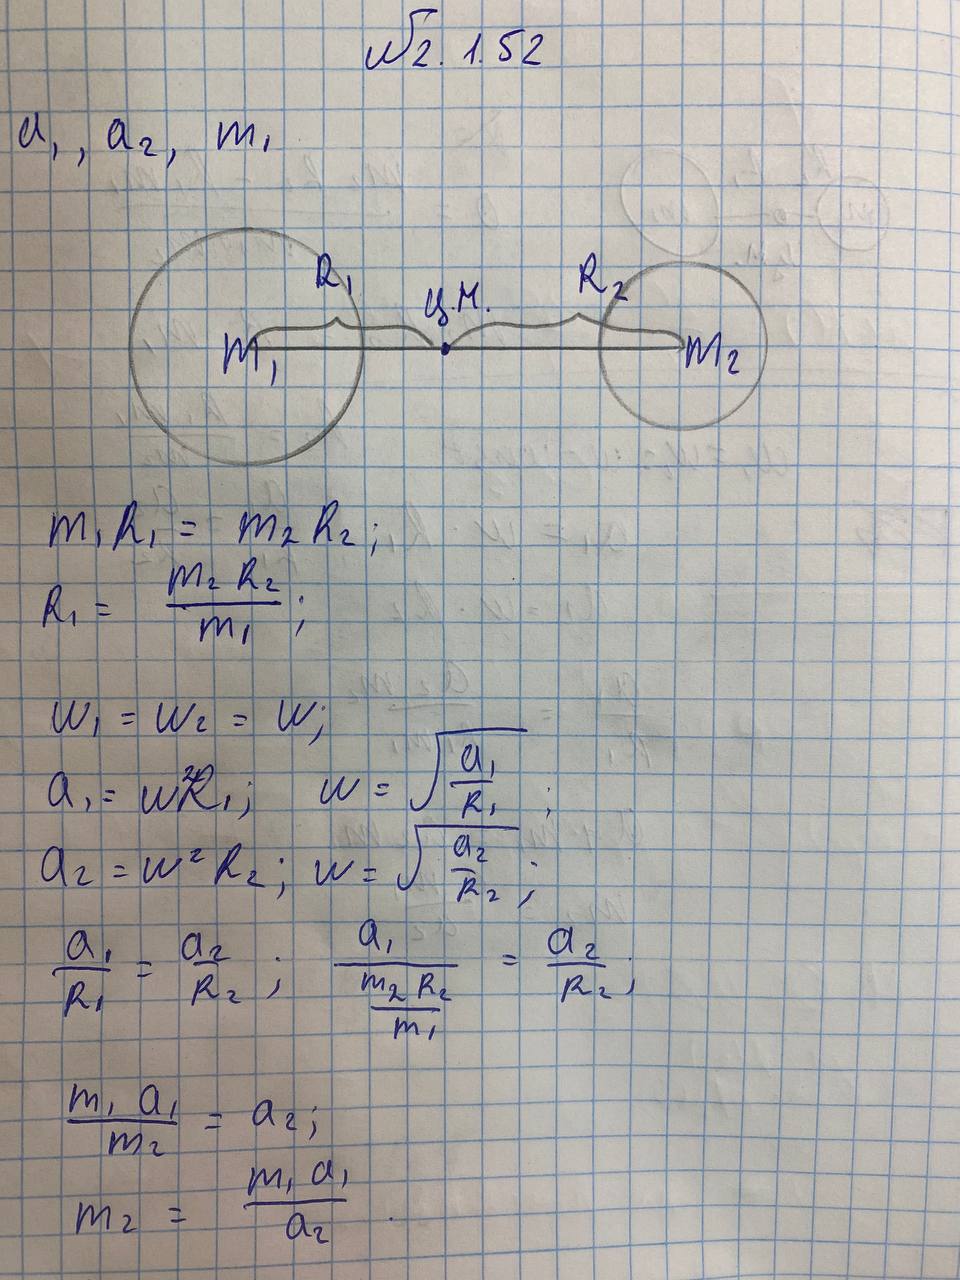 №2.1.52
a₁, a₂, m₁
R₁ ц.м. R₂
m₁ m₂
m₁R₁ = m₂R₂;
R₁ = m₂R₂/m₁;
w₁ = w₂ = w;
a₁ = w²R₁; w = √(a₁/R₁);
a₂ = w²R₂; w = √(a₂/R₂);
a₁/R₁ = a₂/R₂; a₁/(m₂R₂/m₁) = a₂/R₂;
m₁a₁/m₂ = a₂;
m₂ = m₁a₁/a₂.